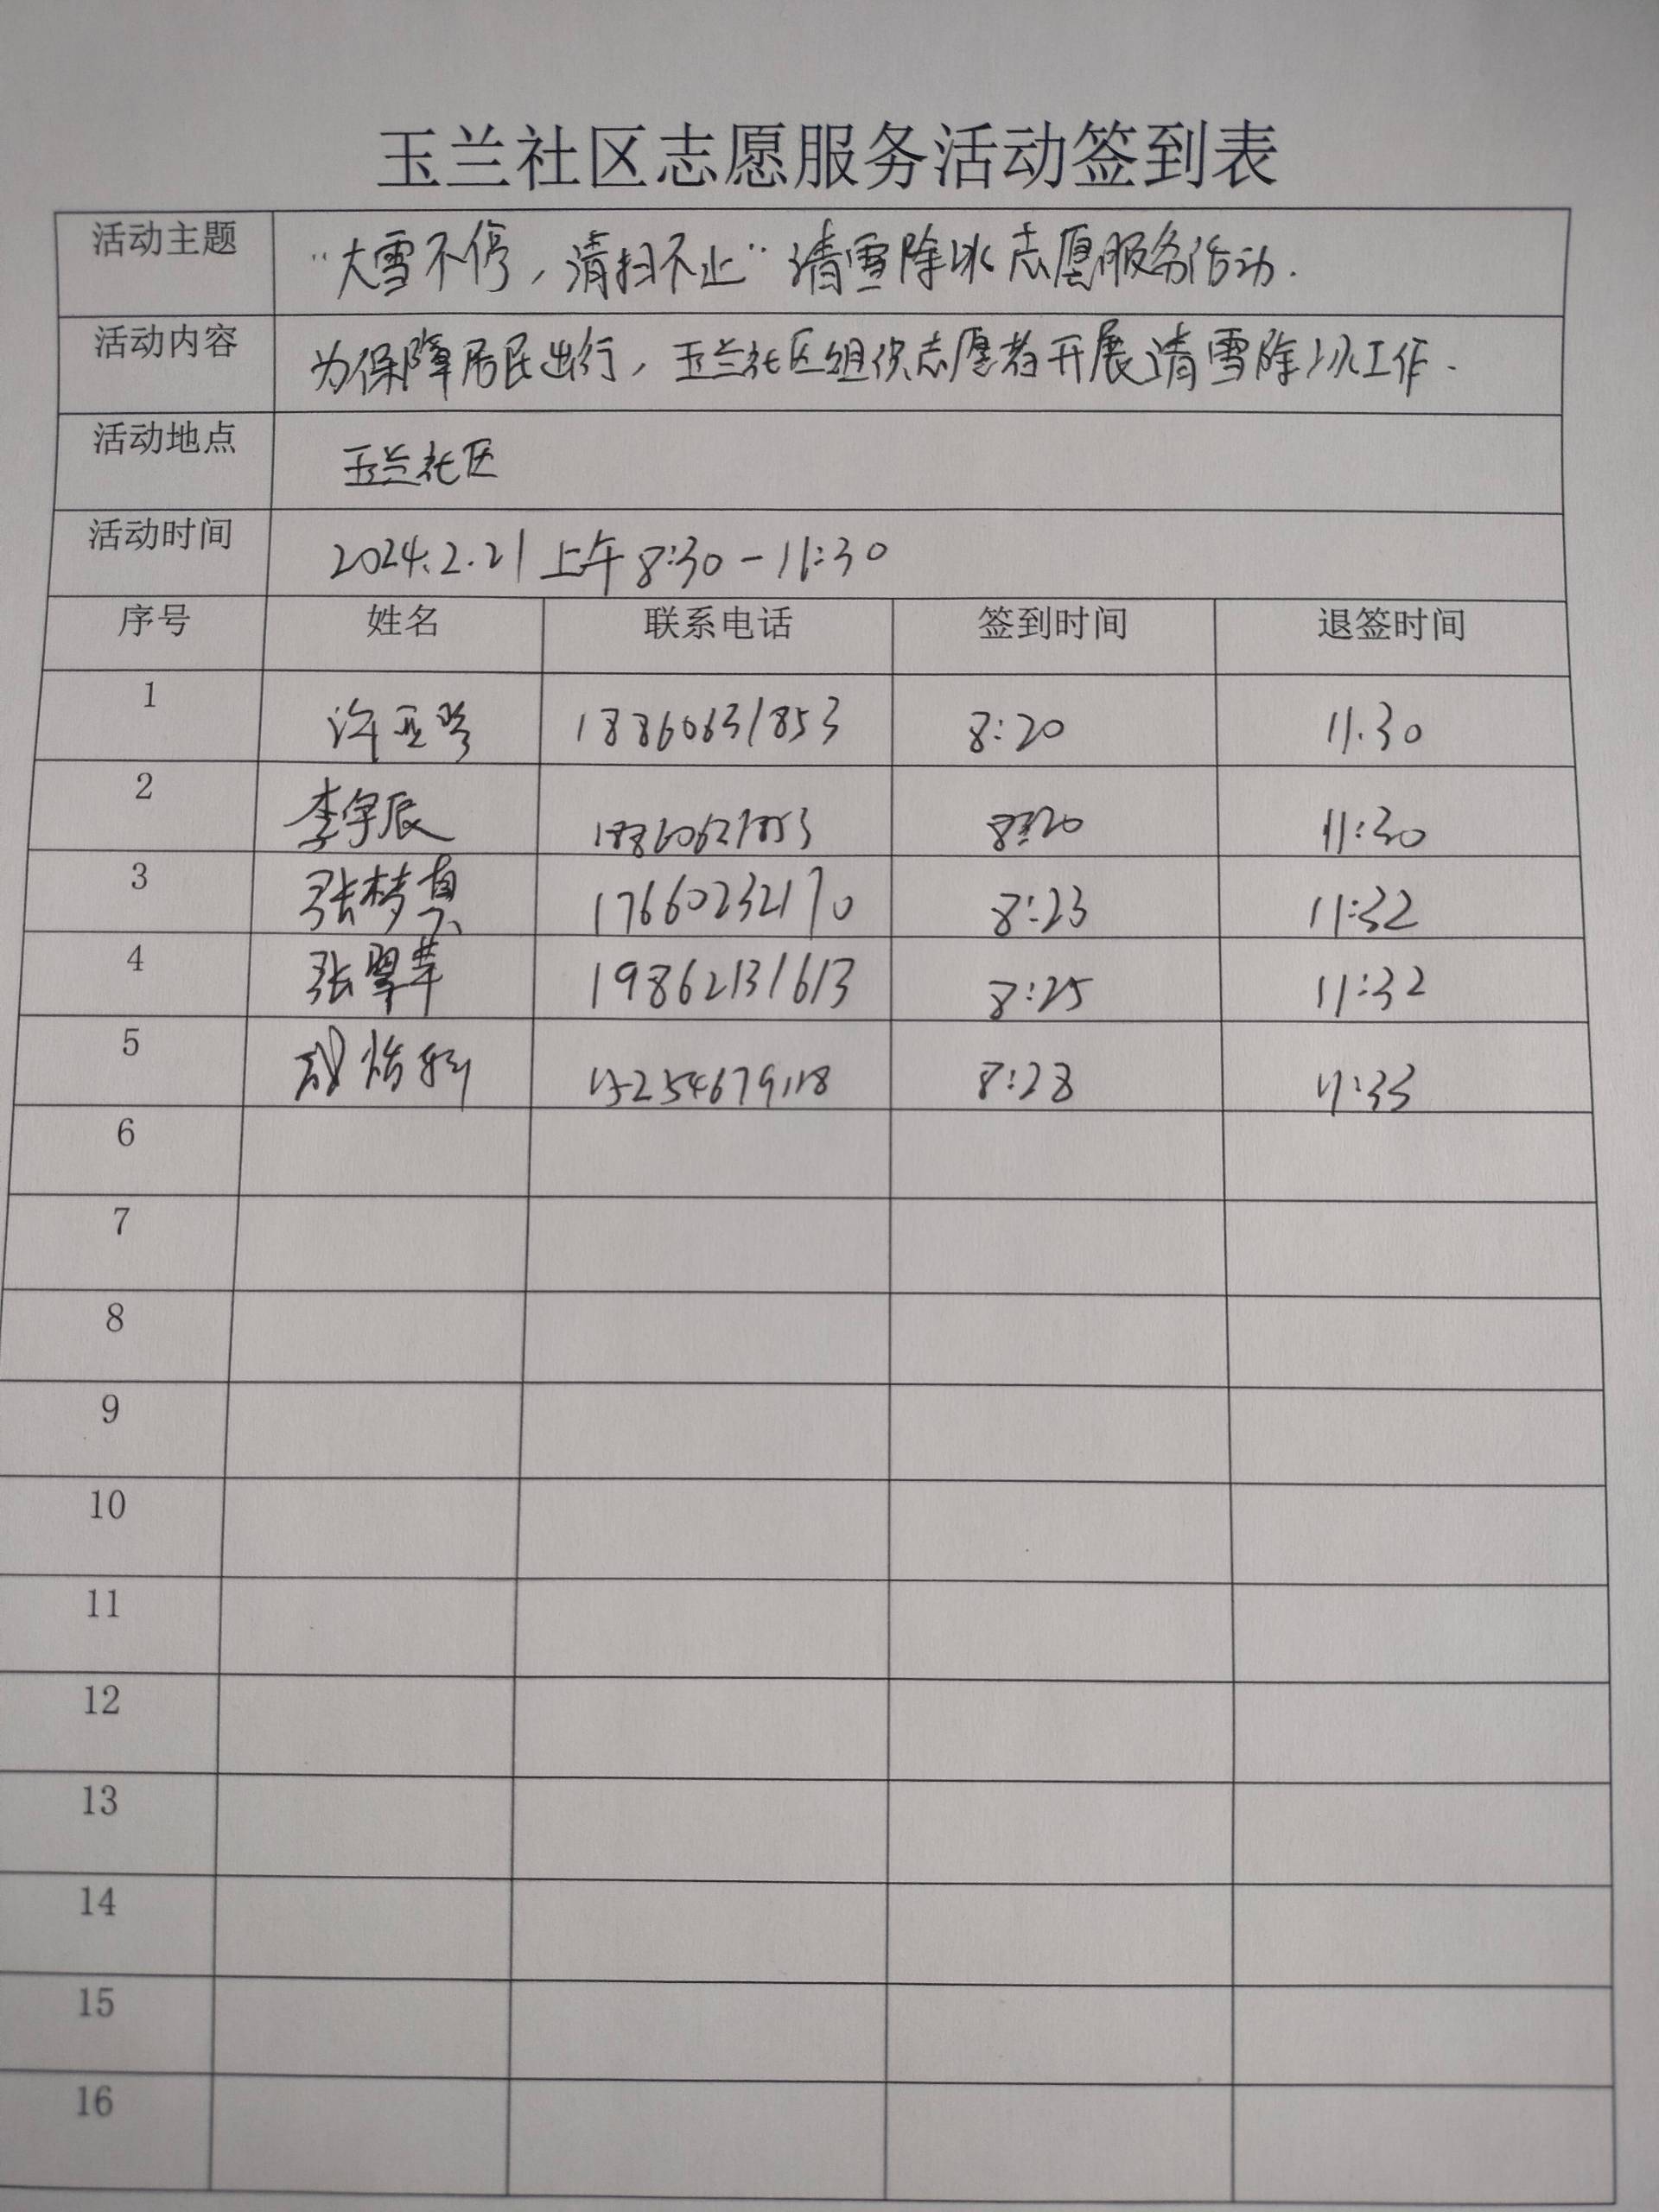 玉兰社区志愿服务活动签到表
活动主题 “大雪不停，清扫不止”清雪除冰志愿服务活动.
活动内容 为保障居民出行，玉兰社区组织志愿者开展清雪除冰工作.
活动地点 玉兰社区
活动时间 2024.2.21 上午 8:30-11:30
序号 姓名 联系电话 签到时间 退签时间
1 许亚 18860631853 8:20 11.30
2 李宇辰 8:20 11:30
3 张梦真 17660232170 8:23 11:32
4 张翠苹 19862131613 8:25 11:32
5 8:28 11:33
6
7
8
9
10
11
12
13
14
15
16